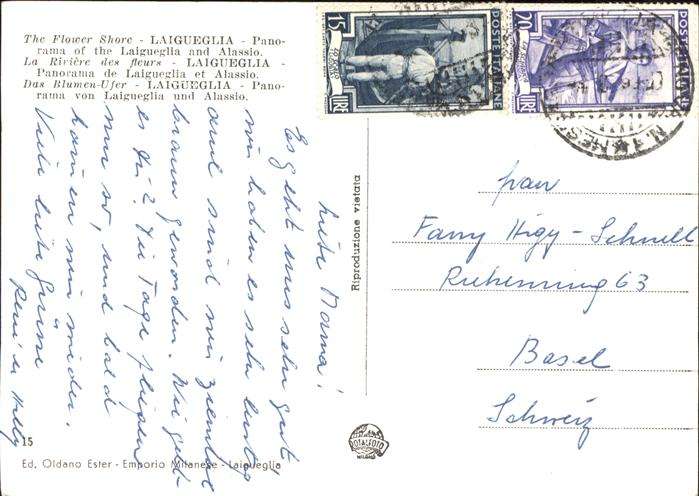 The Flower Shore - LAIGUEGLIA - Pano-
rama of the Laigueglia and Alassio.
La Rivière des fleurs - LAIGUEGLIA -
Panorama de Laigueglia et Alassio.
Das Blumen-Ufer - LAIGUEGLIA - Pano-
rama von Laigueglia und Alassio.
Liebe Mama!
Es geht uns sehr gut
wir haben es sehr lustig
und sind wir ziemlich
braun geworden. Wie geht
es Dir? Die Tage fliegen
nur so, und bald
kommen wir wieder.
Viele liebe Grüsse
René u. Helly
15
Ed. Oldano Ester - Emporio Milanese - Laigueglia
Riproduzione vietata
DOTALFOTO
MILANO
15
LIRE
POSTE ITALIANE
20
LIRE
POSTE ITALIANE
Frau
Fanny Higy-Schnell
Riehenring 63
Basel
Schweiz